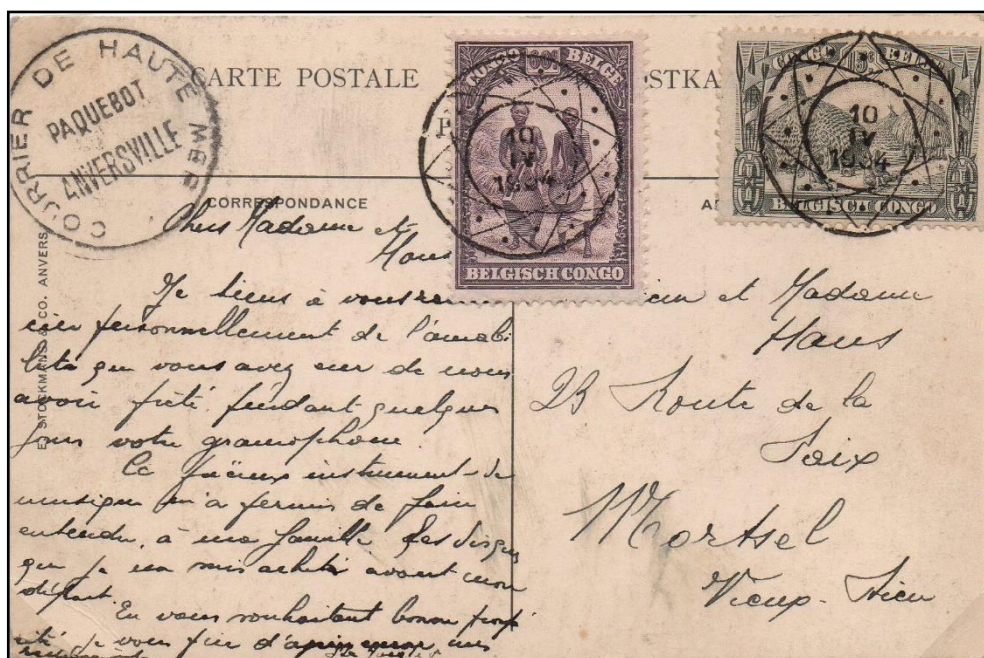 COURRIER DE HAUTE MER
PAQUEBOT
ANVERSVILLE
CARTE POSTALE
CONGO BELGE
BELGISCH CONGO
10
IV
1934
CONGO BELGE
15c
BELGISCH CONGO
10
IV
1934
CORRESPONDANCE
E. STOCKMANS & CO. ANVERS
Chers Madame et
Je tiens à vous
cier personnellement de l'amabi
lité que vous avez eue de nous
avoir prêté pendant quelques
jours votre gramophone.
Ce précieux instrument de
musique m'a permis de faire
entendre, à ma famille les disques
que je me suis acheté avant mon
départ.
En vous souhaitant bonne
je vous prie d'agréer
et Madame
Hans
23 Route de la
Mortsel
Vieux-Dieu